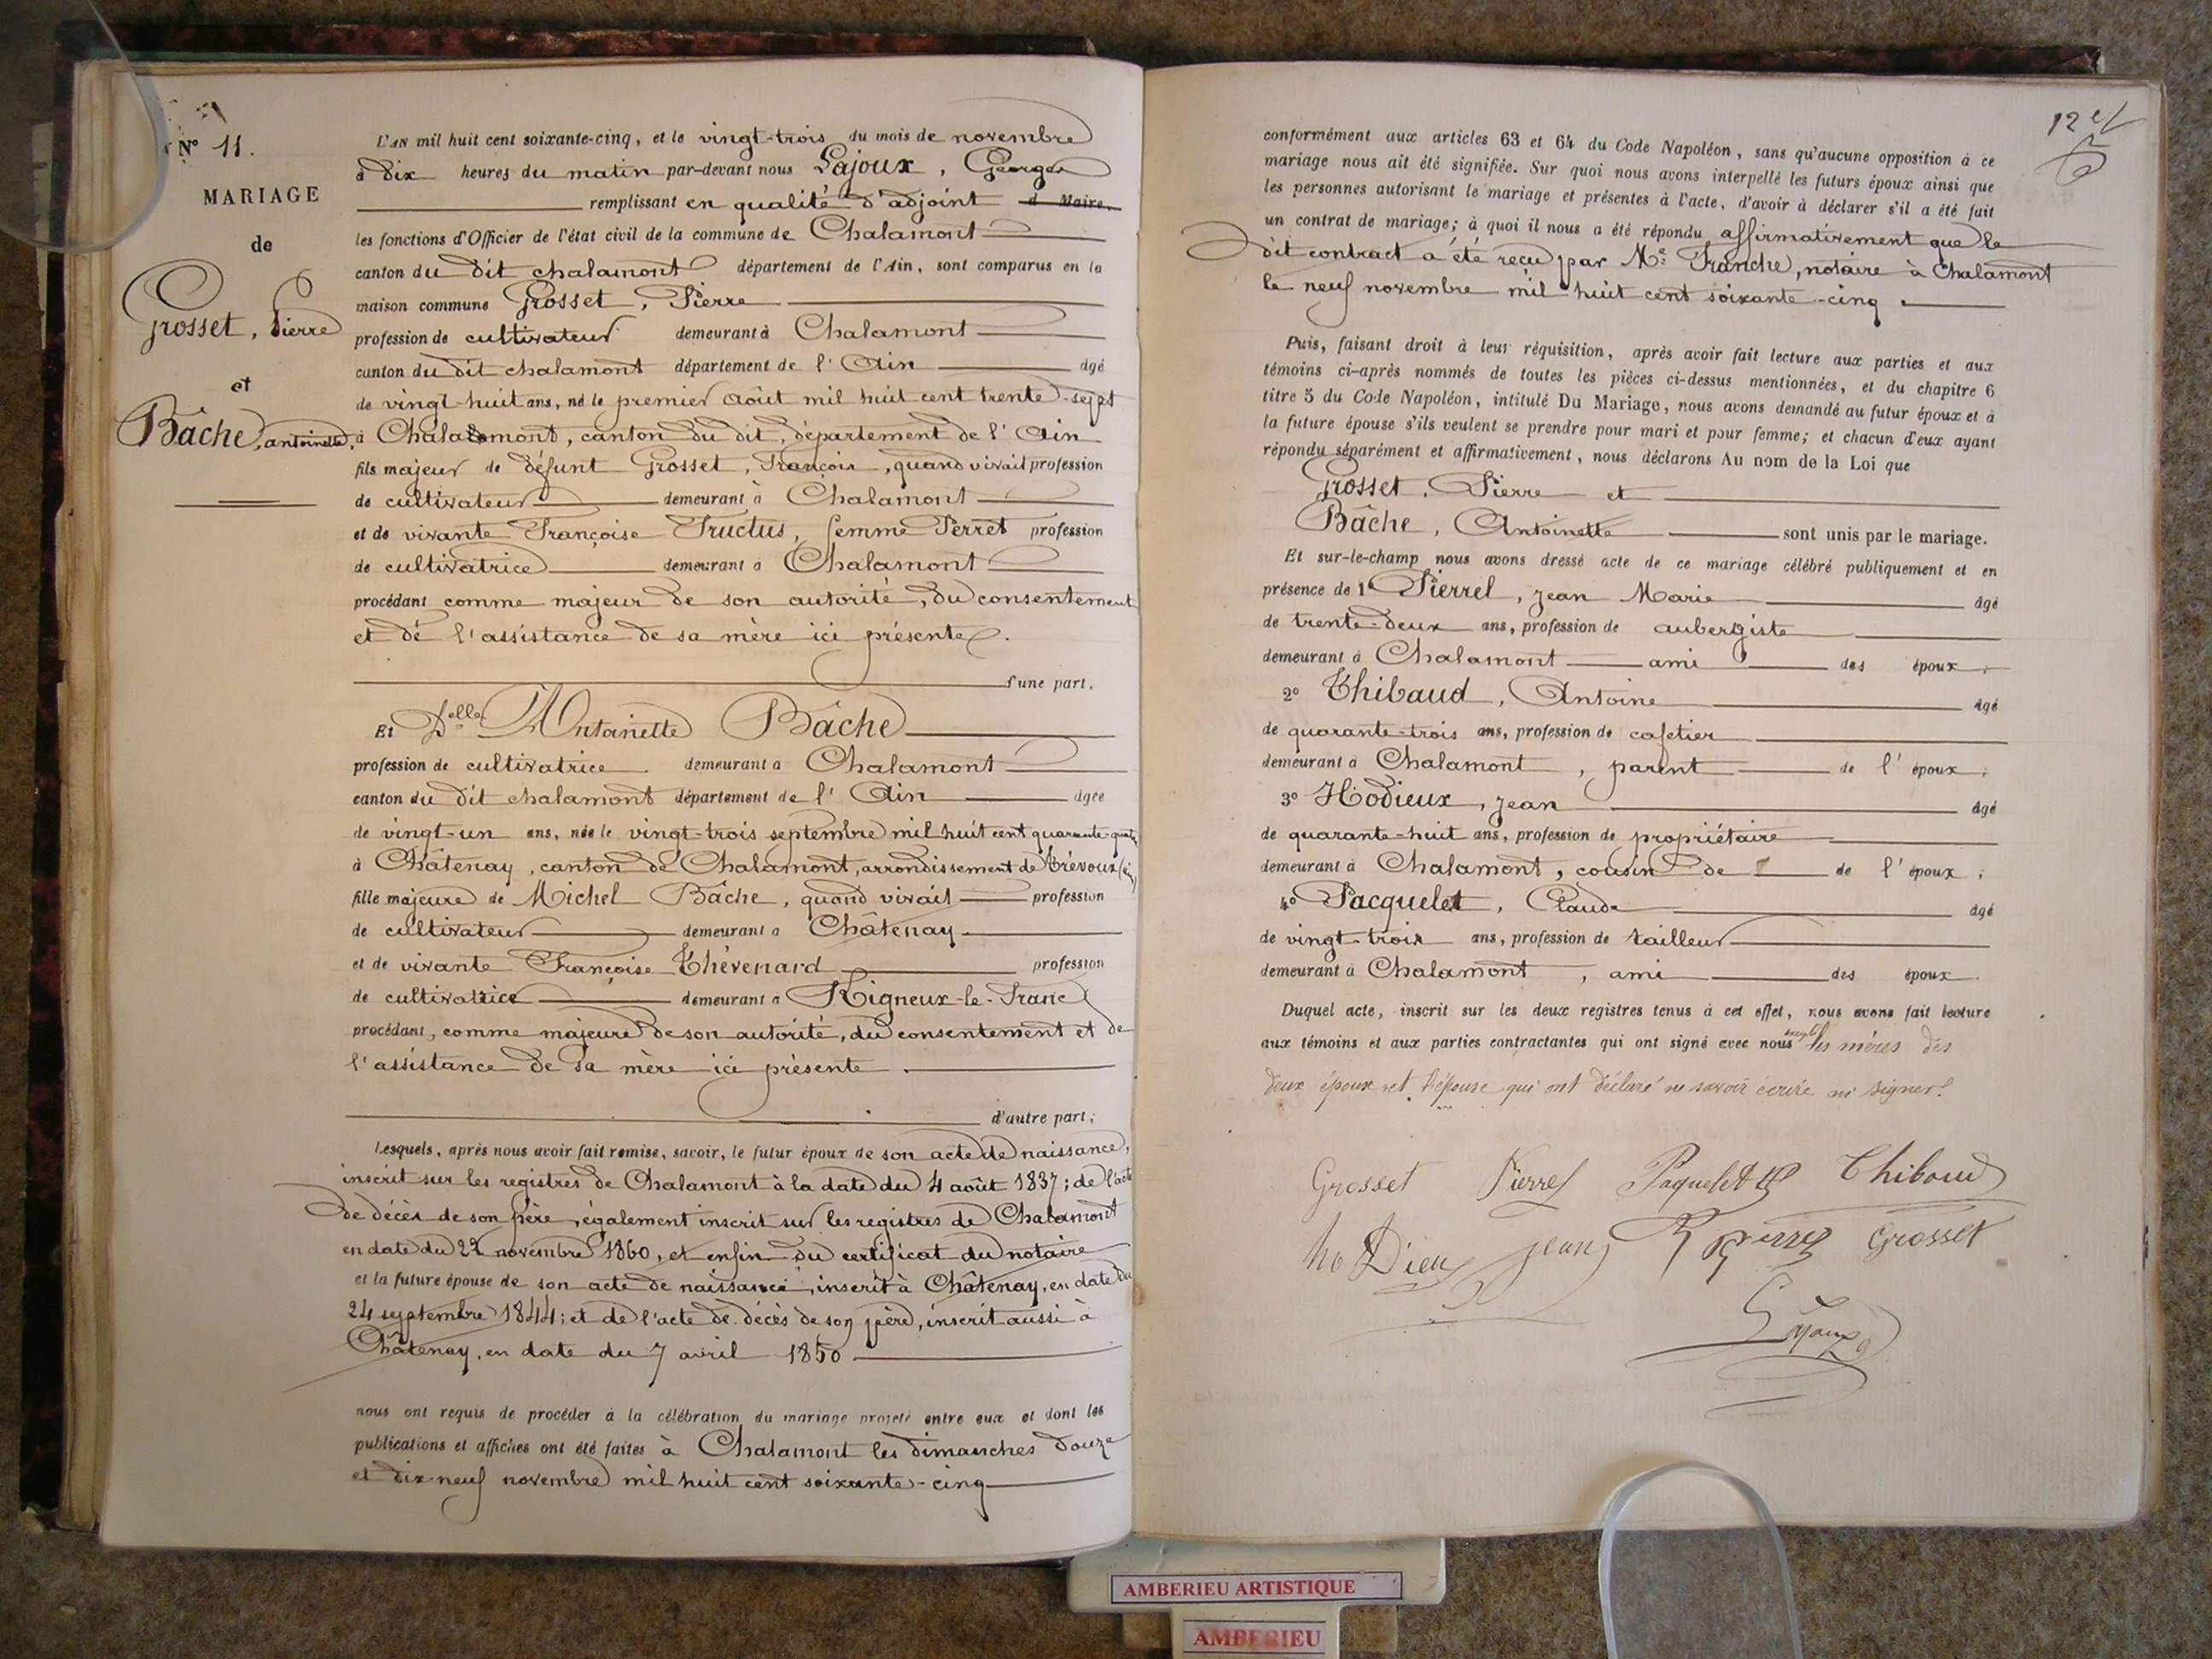 N° 11.
MARIAGE
de
Grosset, Pierre
et
Bâche, antoinette.
L'AN mil huit cent soixante-cinq, et le vingt-trois du mois de novembre
à dix heures du matin par-devant nous Lajoux, Georges
remplissant en qualité d'adjoint d Maire,
les fonctions d'Officier de l'état civil de la commune de Chalamont
canton du dit chalamont département de l'Ain, sont comparus en la
maison commune Grosset, Pierre
profession de cultivateur demeurant à Chalamont
canton du dit chalamont département de l'Ain âgé
de vingt-huit ans, né le premier août mil huit cent trente-sept
à Chalamont, canton du dit, département de l'Ain
fils majeur de défunt Grosset, François, quand vivait profession
de cultivateur demeurant à Chalamont
et de vivante Françoise Fructus, femme Perret profession
de cultivatrice demeurant à Chalamont
procédant comme majeur de son autorité, du consentement
et de l'assistance de sa mère ici présente.
d'une part.
Et Delle Antoinette Bâche
profession de cultivatrice demeurant à Chalamont
canton du dit chalamont département de l'Ain âgée
de vingt-un ans, née le vingt-trois septembre mil huit cent quarante-quatre
à Châtenay, canton de Chalamont, arrondissement de Trévoux (Ain)
fille majeure de Michel Bâche, quand vivait profession
de cultivateur demeurant à Châtenay
et de vivante Françoise Thévenard profession
de cultivatrice demeurant à Rigneux-le-Franc
procédant, comme majeure de son autorité, du consentement et de
l'assistance de sa mère ici présente.
d'autre part;
Lesquels, après nous avoir fait remise, savoir, le futur époux de son acte de naissance,
inscrit sur les registres de Chalamont à la date du 4 août 1837; de l'acte
de décès de son père, également inscrit sur les registres de Chalamont
en date du novembre 1860, et enfin du certificat du notaire
et la future épouse de son acte de naissance, inscrit à Châtenay, en date du
24 septembre 1844; et de l'acte de décès de son père, inscrit aussi à
Châtenay, en date du 7 avril 1850
nous ont requis de procéder à la célébration du mariage projeté entre eux et dont les
publications et affiches ont été faites à Chalamont les dimanches douze
et dix-neuf novembre mil huit cent soixante-cinq
12
conformément aux articles 63 et 64 du Code Napoléon, sans qu'aucune opposition à ce
mariage nous ait été signifiée. Sur quoi nous avons interpellé les futurs époux ainsi que
les personnes autorisant le mariage et présentes à l'acte, d'avoir à déclarer s'il a été fait
un contrat de mariage; à quoi il nous a été répondu affirmativement que le
dit contract a été reçu par Me Franche, notaire à Chalamont
le neuf novembre mil huit cent soixante-cinq.
Puis, faisant droit à leur réquisition, après avoir fait lecture aux parties et aux
témoins ci-après nommés de toutes les pièces ci-dessus mentionnées, et du chapitre 6
titre 5 du Code Napoléon, intitulé Du Mariage, nous avons demandé au futur époux et à
la future épouse s'ils veulent se prendre pour mari et pour femme; et chacun d'eux ayant
répondu séparément et affirmativement, nous déclarons Au nom de la Loi que
Grosset, Pierre et
Bâche, Antoinette sont unis par le mariage.
Et sur-le-champ nous avons dressé acte de ce mariage célébré publiquement et en
présence de 1° Pierrel, Jean Marie âgé
de trente-deux ans, profession de aubergiste
demeurant à Chalamont ami des époux;
2° Thibaud, Antoine âgé
de quarante-trois ans, profession de cafetier
demeurant à Chalamont, parent de l'époux;
3° Hodieux, Jean âgé
de quarante-huit ans, profession de propriétaire
demeurant à Chalamont, cousin de de l'époux;
4° Pacquelet, Claude âgé
de vingt-trois ans, profession de tailleur
demeurant à Chalamont, ami des époux.
Duquel acte, inscrit sur les deux registres tenus à cet effet, nous avons fait lecture
aux témoins et aux parties contractantes qui ont signé avec nous excepté les mères des
deux époux et l'épouse qui ont déclaré ne savoir écrire ni signer.
Grosset Pierrel Paquelet Thibaud
ho Dieu jean Grosset
Lajoux
AMBERIEU ARTISTIQUE
AMBERIEU